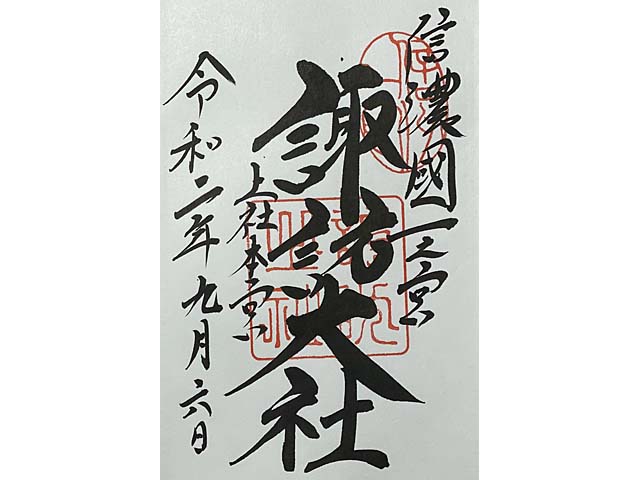 信濃國一之宮
諏訪大社
上社本宮
令和二年九月六日